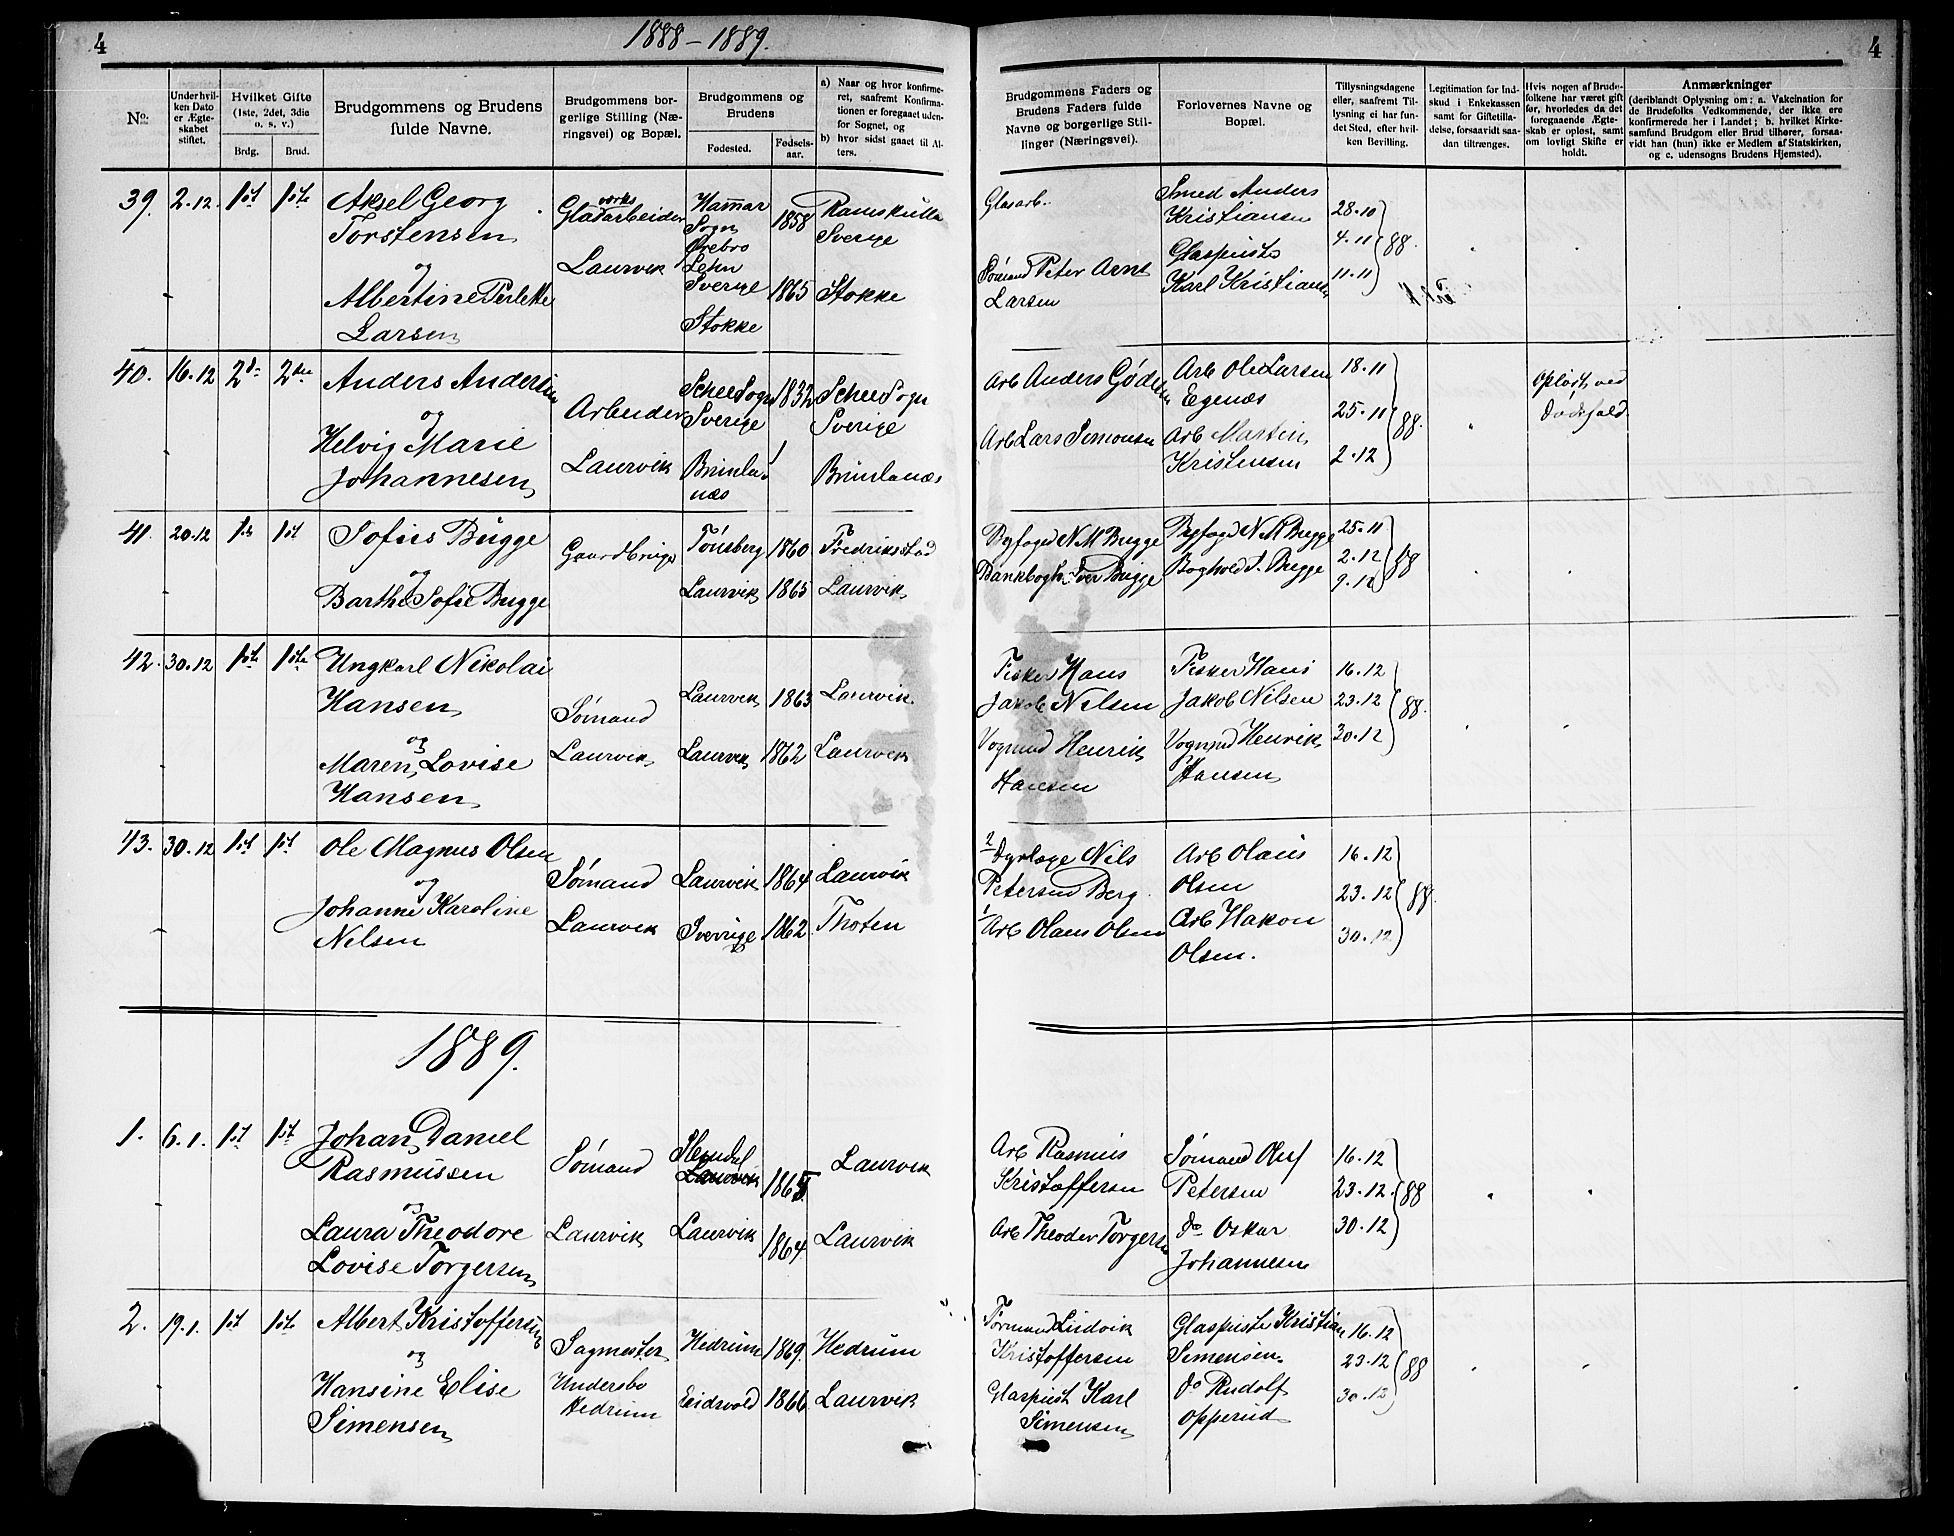 4
1888-1889.
4
No.
Under hvil-
ken Dato
er Ægte-
skabet
stiftet.
Hvilket Gifte
(1ste, 2det, 3die
o. s. v.)
Brdg.
Brud.
Brudgommens og Brudens
fulde Navne.
Brudgommens bor-
gerlige Stilling (Næ-
ringsvei) og Bopæl.
Brudgommens og
Brudens
Fødested.
Fødsels-
aar.
a) Naar og hvor konfirme-
ret, saafremt Konfirma-
tionen er foregaaet uden-
for Sognet, og
b) hvor sidst gaaet til Al-
ters.
Brudgommens Faders og
Brudens Faders fulde
Navne og borgerlige Stil-
linger (Næringsvei).
Forlovernes Navne og
Bopæl.
Tillysningsdagene
eller, saafremt Til-
lysning ei har fun-
det Sted, efter hvil-
ken Bevilling.
Legitimation for Ind-
skud i Enkekassen
samt for Giftetilla-
delse, forsaavidt saa-
dan tiltrænges.
Hvis nogen af Brude-
folkene har været gift
før, hvorledes da det
foregaaende Ægte-
skab er opløst, samt
om lovligt Skifte er
holdt.
Anmærkninger
(deriblandt Oplysning om: a. Vakcination for
de Brudefolks Vedkommende, der ikke ere
konfirmerede her i Landet; b. hvilket Kirke-
samfund Brudgom eller Brud tilhører, forsaa-
vidt han (hun) ikke er Medlem af Statskirken,
og c. udensogns Brudens Hjemsted).
39. 2.12. 1st 1ste
Aksel Georg
Torstensen
og
Albertine Perlette
Larsen
værks
Glasarbeider
Laurvik
Hammar
Sogn
Ørebro
Lehn
Sverige
Stokke
1858
1865
Ramskulla
Sverige
Stokke
Glasarb.
Sømand Peter Arnt
Larsen
Smed Anders
Kristiansen
Glaspuster
Karl Kristiansen
28.10
4.11
11.11
88.
40. 16.12 2d 2den
Anders Andersen
og
Helvig Marie
Johannesen
Arbeider
Laurvik
Schee Sogn
Sverige
Brunla-
næs
1832
Schee Sogn
Sverige
Brunlanæs
Arb Anders Gødesen
Arb Lars Simonsen
Arb Ole Larsen
Egenæs
Arb Martin
Kristensen
18.11
25.11
2.12
88.
Opløst ved
Dødsfald.
41. 20.12 1st 1st
Sofus Bugge
og
Barthe Sofie Bugge
Gaardbruger
Tønsberg
Laurvik
1860
1865
Fredriksstad
Laurvik
Byfoged N M Bugge
Bankbogh. Iver Bugge
Byfoged N M Bugge
Boghold I. Bugge
25.11
2.12
9.12
88
42. 30.12 1ste 1ste
Ungkarl Nikolai
Hansen
og
Maren Lovise
Hansen
Sømand
Laurvik
Laurvik
Laurvik
1863
1862
Laurvik.
Laurvik
Fisker Hans
Jakob Nilsen
Vognmd Henrik
Hansen
Fisker Hans
Jakob Nilsen
Vognmd Henrik
Hansen
16.12
23.12
30.12
88.
43. 30.12 1st 1st
Ole Magnus Olsen
og
Johanne Karoline
Nelsen
Sømand
Laurvik
Laurvik
Sverrige
1864
1862
Laurvik
Thoten
2 Dyrlæge Nils
Petersen Berg.
1 Arb Olaus Olsen
Arb Olaus
Olsen
Arb Hakon
Olsen.
16.12
23.12
30.12
88.
1889.
1. 6.1. 1st 1st
Johan Daniel
Rasmussen
og
Laura Theodore
Lovise Torgersen
Sømand
Laurvik
Slemdal
Laurvik
Laurvik
1865
1864
Laurvik
Laurvik
Arb Rasmus
Kristoffersen
Arb Theodor Torgersen
Sømand Oluf
Petersen
do Oskar
Johannesen
16.12
23.12.
30.12
88
2. 19.1. 1st 1ste
Albert Kristoffersen
og
Hansine Elise
Simensen
Sagmester
Undersbo
Hedrum
Hedrum
Eidsvold
1869.
1866
Hedrum
Laurvik
Tømmermd Ludvik
Kristoffersen
Glaspust Karl
Simensen
Glaspuster Kristian
Simensen.
do Rudolf
Opperud
16.12
23.12
30.12
88